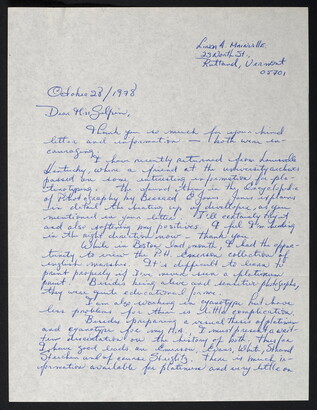 Linda A. Mainville
29 North St.
Rutland, Vermont
05701
October 28/1978
Dear Mr. Gilpin,
Thank you so much for your kind
letter and information — both were en-
couraging.
I have recently returned from Louisville
Kentucky, where a friend at the university archives
passed on some interesting information by pla-
tinotyping. — the journal item in the Encyclopedia
of Photography by Bernard E Jones explains
in detail the heating up of developer, as you
mentioned in your letter. I'll certainly try it
and also softening my positives. I feel I'm heading
in the right direction now — thank you.
While in Boston last month, I had the oppor-
tunity to view the P.H. Emerson collection of
english marshes. It's difficult to assess a
print properly if I've never seen a platinum
print. Besides being alive and sensitive photographs,
they were quite educational for me.
I am also working in cyanotype but have
less problems for that is little complication
Besides preparing a visual thesis of platinum
and cyanotype for my M.A. I must present a writ-
ten dissertation on the history of both. Thus far
I have good leads on Emerson, Evans, White, Strand
Steichen and of course Stieglitz. There is much in-
formation available for platinum and very little on